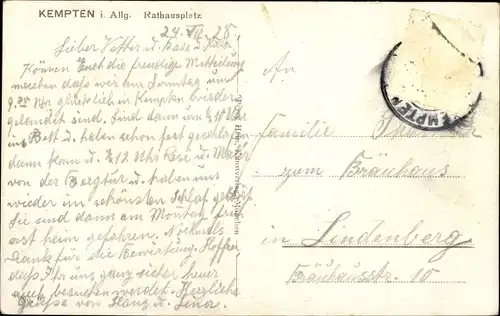 KEMPTEN i. Allg. Rathausplatz
24. VII. 28
Lieber Vetter u. Base u.
Können Euch die freudige Mitteilung
machen daß wir am Sonntag um
9 Uhr glücklich in Kempten wieder
gelandet sind. Sind dann um ½10 Uhr
ins Bett u. haben schon fest geschlafen
dann kam u. ½12 Uhr Base u.
von der Bergtur u. haben uns
wieder im schönsten Schlaf gestört
Sie sind dann am Montag früh
erst heim gefahren. Nochmals
Dank für die Bewirtung. Hoffe
daß Ihr uns ganz sicher heuer
auch besuchen werdet. Herzliche
Grüße von Hans u. Lena.
An
Familie
zum Bräuhaus
in Lindenberg
Bräuhausstr. 10
KEMPTEN